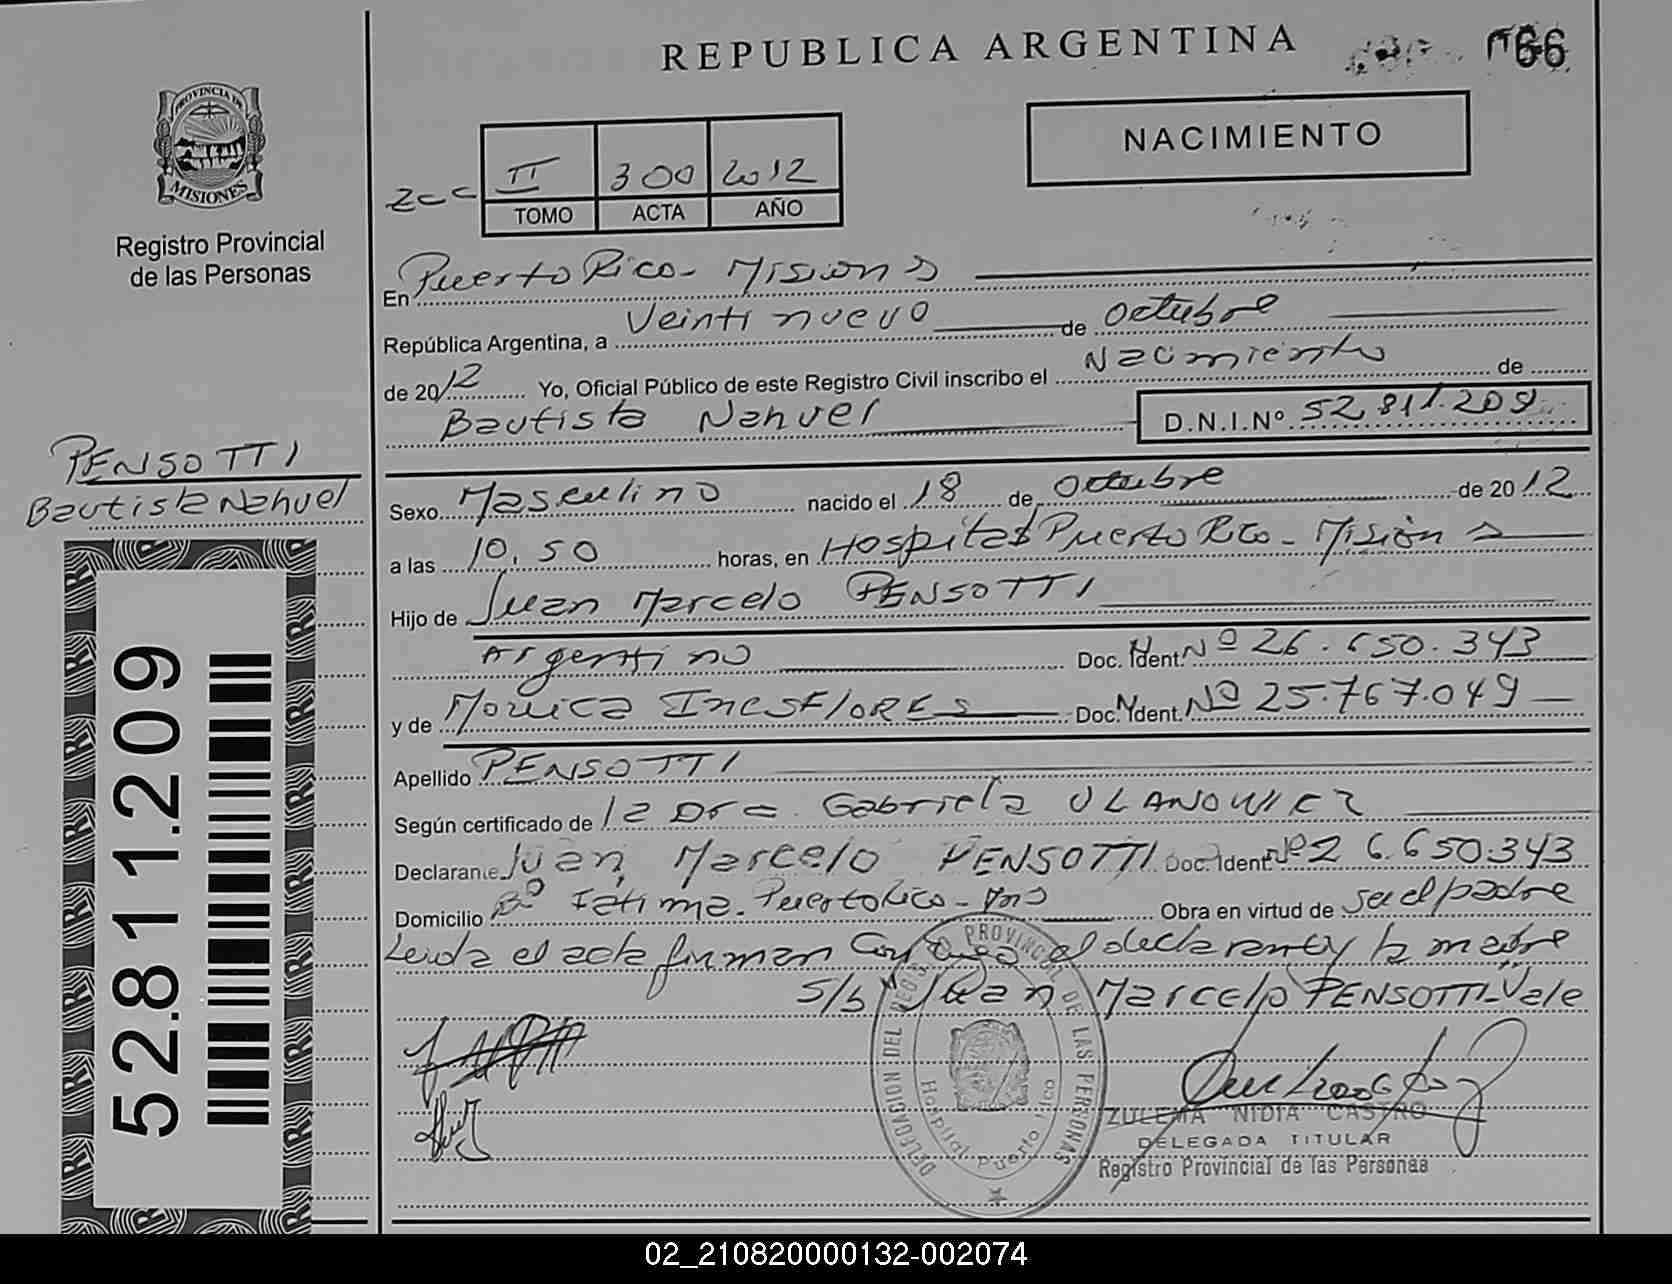 REPUBLICA ARGENTINA
66
PROVINCIA DE
MISIONES
Registro Provincial
de las Personas
II 300 2012
TOMO ACTA AÑO
NACIMIENTO
En Puerto Rico - Misiones
República Argentina, a Veinti nueve de Octubre
de 2012 Yo, Oficial Público de este Registro Civil inscribo el Nacimiento de
Bautista Nahuel D.N.I.Nº 52.811.209
PENSOTTI
Bautista Nahuel
Sexo Masculino nacido el 18 de Octubre de 2012
a las 10,50 horas, en Hospital Puerto Rico - Misiones
Hijo de Juan Marcelo PENSOTTI
Argentino Doc. Ident. Nº 26.650.343
y de Monica Ines FLORES Doc. Ident. Nº 25.767.049
Apellido PENSOTTI
Según certificado de la Dra. Gabriela ULANOWICZ
Declarante Juan Marcelo PENSOTTI Doc. Ident. Nº 26.650.343
Domicilio Bº Fátima - Puerto Rico - Mns Obra en virtud de ser el padre
Leida el acta firman conmigo el declarante y la madre
S/b Juan Marcelo PENSOTTI - Vale
52.811.209
DELEGACION DEL REGISTRO PROVINCIAL DE LAS PERSONAS
Hospital Puerto Rico
ZULEMA NIDIA CASTRO
DELEGADA TITULAR
Registro Provincial de las Personas
02_210820000132-002074